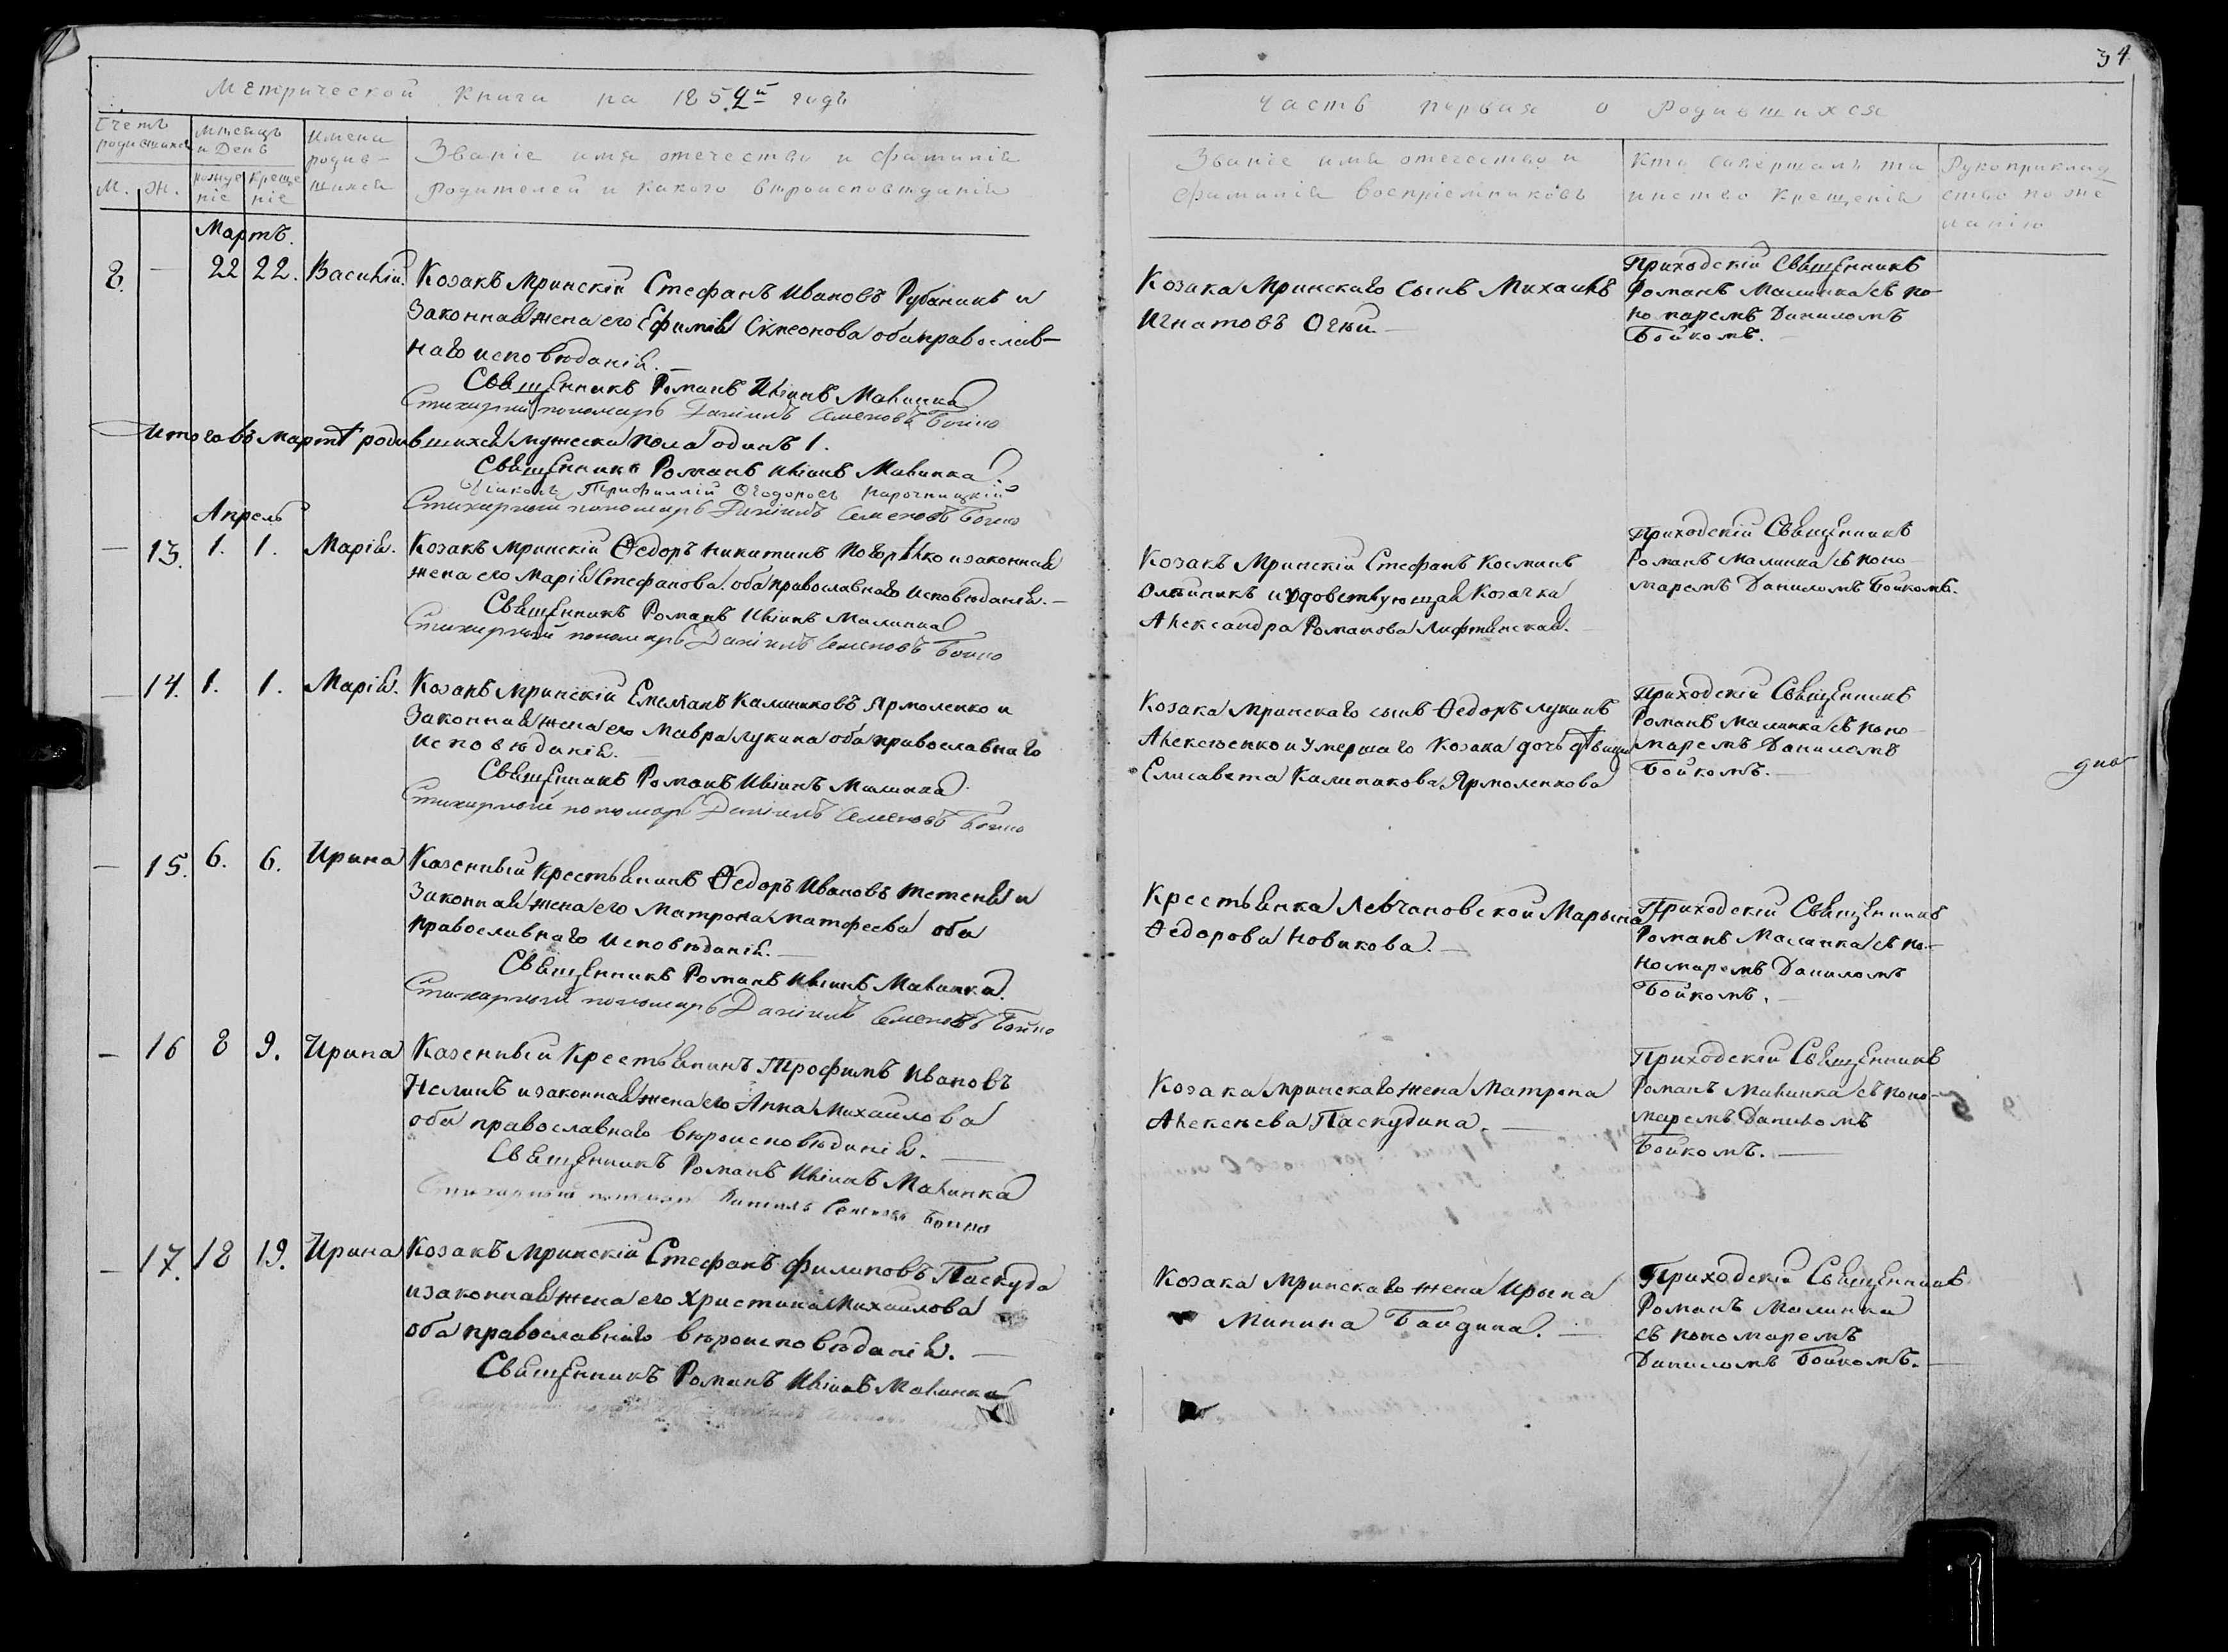 Метрической книги на 1852й годъ
Счетъ родившихся
М. Ж.
Мѣсяцъ и День
рожденіе крещеніе
Имена родившихся
Званіе имя отечество и фамилія
родителей и какого вѣроисповѣданія
Мартъ.
8. — 22 22. Василій. Козакъ Мринскій Стефанъ Ивановъ Рубаникъ и
Законная жена его Ефимія Симеонова оба православ-
наго исповѣданія.
Священникъ Романъ Ильинъ Малинка
Стихарный пономарь Даніилъ Семеновъ Бойко
Итого въ мартѣ родившихся мужеска пола одинъ 1.
Священникъ Романъ Ильинъ Малинка
Стихарный пономарь Даніилъ Семеновъ Бойко
Апрель
— 13. 1. 1. Марія. Козакъ Мринскій Ѳедоръ Никитинъ и законная
жена его Марія Стефанова оба православнаго исповѣданія. —
Священникъ Романъ Ильинъ Малинка
Стихарный пономарь Даніилъ Семеновъ Бойко
— 14. 1. 1. Марія. Козакъ Мринскій Емельянъ Калиниковъ Ярмоленко и
Законная жена его Мавра Лукина оба православнаго
исповѣданія.
Священникъ Романъ Ильинъ Малинка
Стихарный пономарь Даніилъ Семеновъ Бойко
— 15. 6. 6. Ирина Казенный крестьянинъ Ѳедоръ Ивановъ и
Законная жена его Матрона Матфеева оба
православнаго исповѣданія. —
Священникъ Романъ Ильинъ Малинка.
Стихарный пономарь Даніилъ Семеновъ Бойко
— 16 8 9. Ирина Казенный Крестьянинъ Трофимъ Ивановъ
и законная жена его Анна Михаилова
оба православнаго вѣроисповѣданія. —
Священникъ Романъ Ильинъ Малинка
Стихарный пономарь Даніилъ Семеновъ Бойко
— 17. 18 19. Ирина Козакъ Мринскій Стефанъ Филиповъ Паскуда
и законная жена его Христина Михаилова
оба православнаго вѣроисповѣданія. —
Священникъ Романъ Ильинъ Малинка
34
Часть первая о родившихся
Званіе имя отечество и
фамилія воспріемниковъ
Кто совершалъ та
инство крещенія
Рукоприклад
ство по же
ланію
Козака Мринскаго сынъ Михаилъ
Игнатовъ
Приходскій Священникъ
Романъ Малинка съ по-
номаремъ Даниломъ
Бойкомъ. —
Козакъ Мринскій Стефанъ Косминъ
Олѣйникъ и вдовствующая Козачка
Александра Романова
Приходскій Священникъ
Романъ Малинка съ поно
маремъ Даниломъ Бойкомъ.
Козака Мринскаго сынъ Ѳедоръ Лукинъ
Алексѣенко и умершаго Козака дочь дѣвица
Елисавета Калиникова Ярмоленкова
Приходскій Священникъ
Романъ Малинка съ поно
маремъ Даниломъ
Бойкомъ. —
Крестьянка Марьина
Ѳедорова Новикова. —
Приходскій Священникъ
Романъ Малинка съ по-
номаремъ Даниломъ
Бойкомъ. —
Козака Мринскаго жена Матрена
Алексѣева Паскудина. —
Приходскій Священникъ
Романъ Малинка съ поно-
маремъ Даниломъ
Бойкомъ. —
Козака Мринскаго жена Ирына
Минина Байдина. —
Приходскій Священникъ
Романъ Малинка
съ пономаремъ
Даниломъ Бойкомъ. —